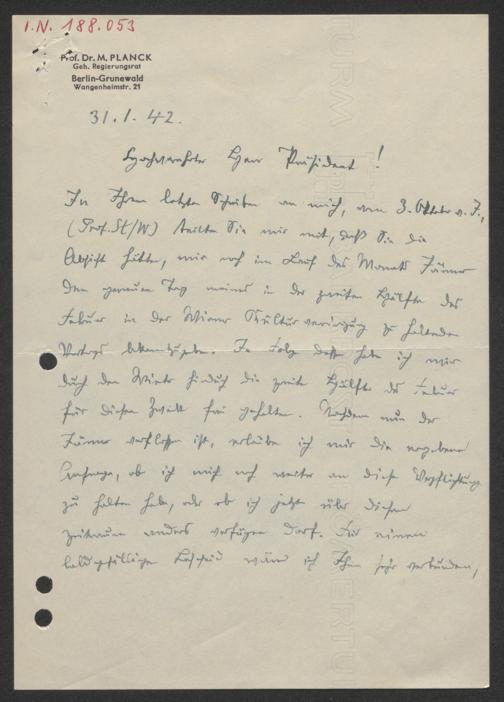 I.N. 188.053
Prof. Dr. M. PLANCK
Geh. Regierungsrat
Berlin-Grunewald
Wangenheimstr. 21
31.1.42.
Hochverehrter Herr Präsident!
In Ihrem letzten Schreiben an mich, vom 3. Oktober v. J.,
(Prof. St/W) teilten Sie mir mit, daß Sie die
Absicht hätten, mir noch im Lauf des Monats Jänner
den genauen Tag meines in der zweiten Hälfte des
Februar in der Wiener Kulturvereinigung zu haltenden
Vortrags bekanntzugeben. In Folge dessen habe ich mir
durch den Winter hindurch die zweite Hälfte des Februar
für diesen Zweck frei gehalten. Nachdem nun der
Jänner verflossen ist, erlaube ich mir die ergebene
Anfrage, ob ich mich noch weiter an diese Verpflichtung
zu halten habe, oder ob ich jetzt über diesen
Zeitraum anders verfügen darf. Für einen
baldgefälligen Bescheid wäre ich Ihnen sehr verbunden,